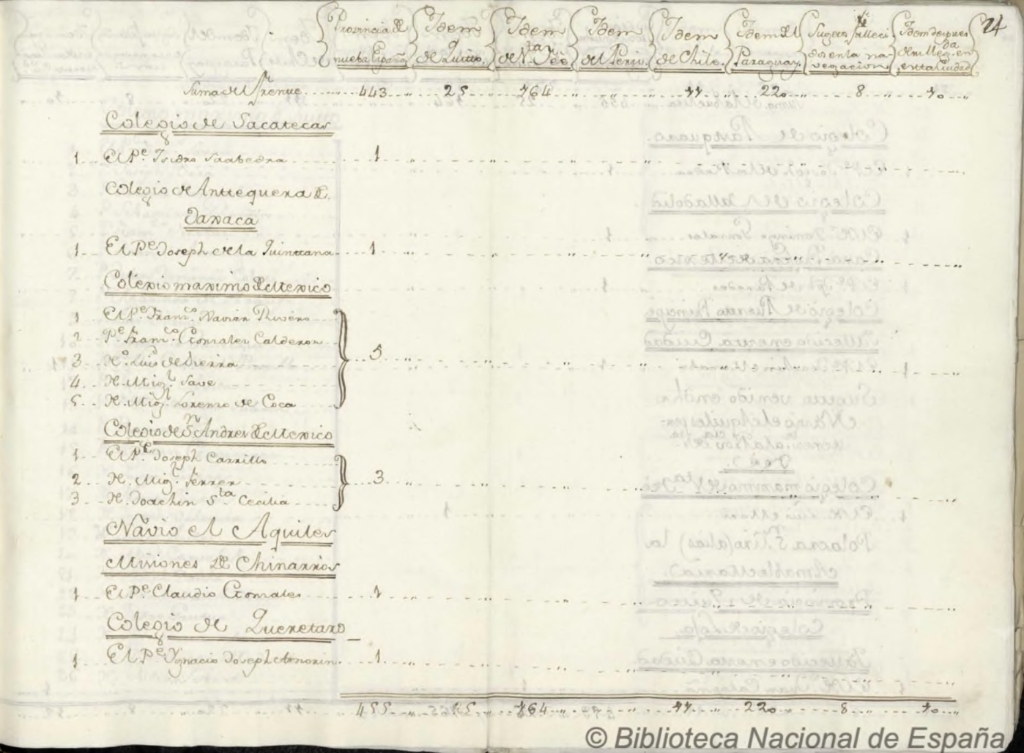 24
Provincia de nueba Españ Idem de Quito Idem de Sta Feè Idem del Perù Idem de Chile Idem del Paraguay Sugetos falleci dos en la na vegacion Idem despues de en esta Ciudad
Suma del frente 443 25 164 11 220 8 10
Colegio de Sacatecas
1 El Pe Isidro Saabedra 1
Colegio de Antequera de
Oaxaca
1 El Pe Joseph de la Quintana 1
Colegio maximo de Mexico
1 El Pe Franco Xavier Rivero
2 Pe Franco Gonzales Calderon
3 Ho Luis de Sierra 5
4 H. Migl Save
5 H. Migl Lorenzo de Coca
Colegio de Sn Andres de Mexico
1 El Pe Joseph Carrillo
2 H. Migl Ferrer 3
3 H. Joachin Sta Cecilia
Navio el Aquiles
Misiones de Chinarros
1 El Pe Claudio Gonzales 1
Colegio de Queretaro
1 El Pe Ignacio Joseph 1
455 25 164 11 220 8 10
© Biblioteca Nacional de España